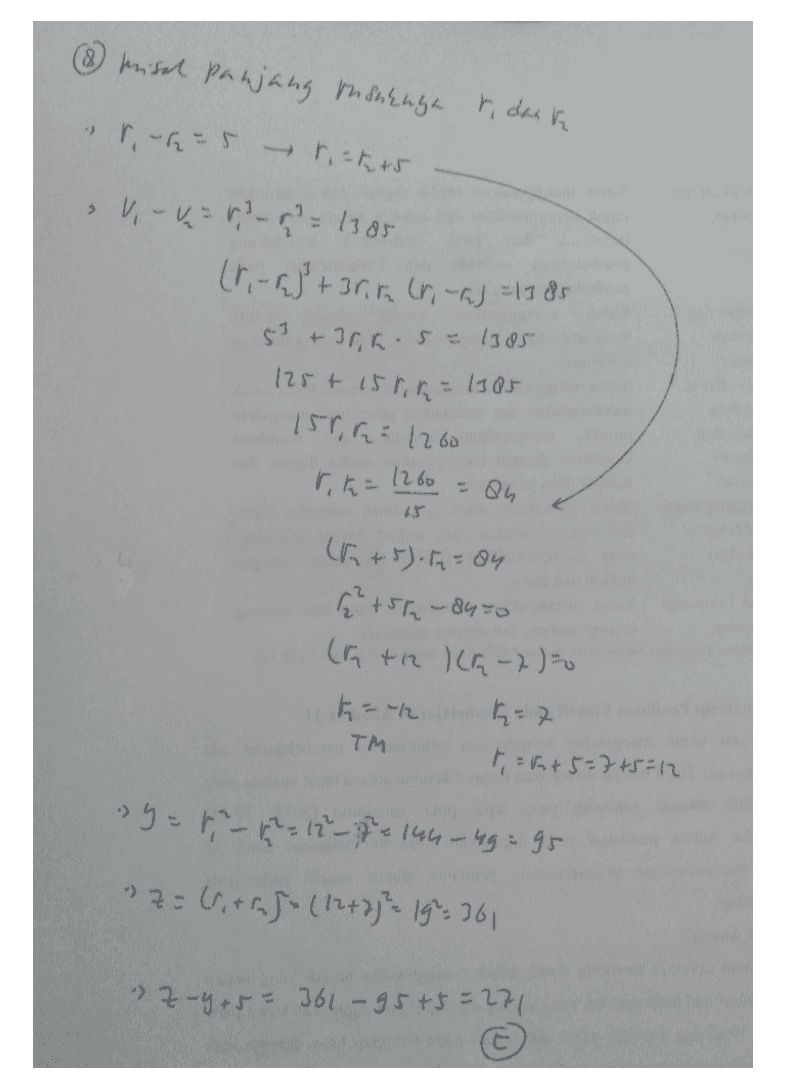 ⑧ misal panjang rusuknya r₁ dan r₂
•) r₁ - r₂ = 5 → r₁ = r₂ + 5
•) V₁ - V₂ = r₁³ - r₂³ = 1385
(r₁ - r₂)³ + 3r₁r₂ (r₁ - r₂) = 1385
5³ + 3r₁r₂ · 5 = 1385
125 + 15 r₁r₂ = 1385
15 r₁r₂ = 1260
r₁r₂ = 1260/15 = 84
(r₂ + 5) · r₂ = 84
r₂² + 5r₂ - 84 = 0
(r₂ + 12)(r₂ - 7) = 0
r₂ = -12 r₂ = 7
TM r₁ = r₂ + 5 = 7 + 5 = 12
•) y = r₁² - r₂² = 12² - 7² = 144 - 49 = 95
•) z = (r₁ + r₂)² = (12 + 7)² = 19² = 361
•) z - y + 5 = 361 - 95 + 5 = 271
Ⓔ